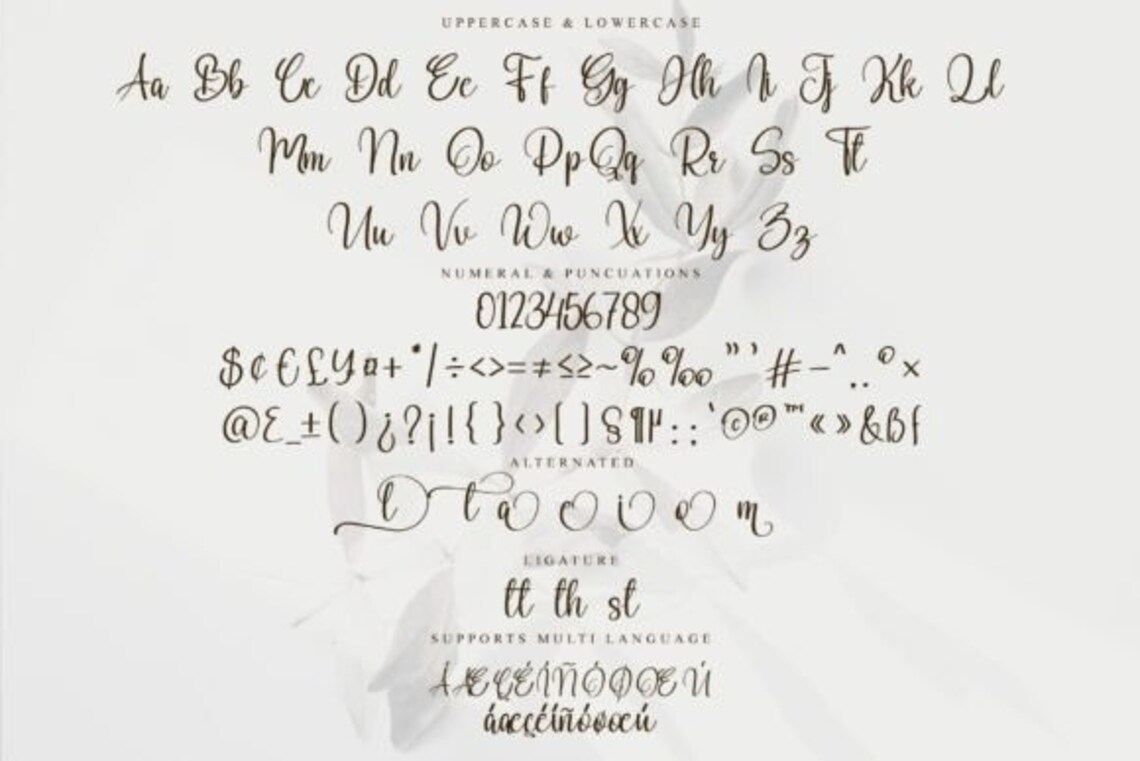 UPPERCASE & LOWERCASE
Aa Bb Cc Dd Ee Ff Gg Hh Ii Jj Kk Ll
Mm Nn Oo Pp Qq Rr Ss Tt
Uu Vv Ww Xx Yy Zz
NUMERAL & PUNCUATIONS
0123456789
$¢€£¥¤+*/÷<>=≠≤≥~%‰”’#–^..º×
@£_±()¿?¡!{}‹›[]§¶µ::`©®™«»&ßf
ALTERNATED
l t a c i e m
LIGATURE
tt th st
SUPPORTS MULTI LANGUAGE
ÁÆÇÉÍÑÓØŒÚ
áæçéíñóøœú